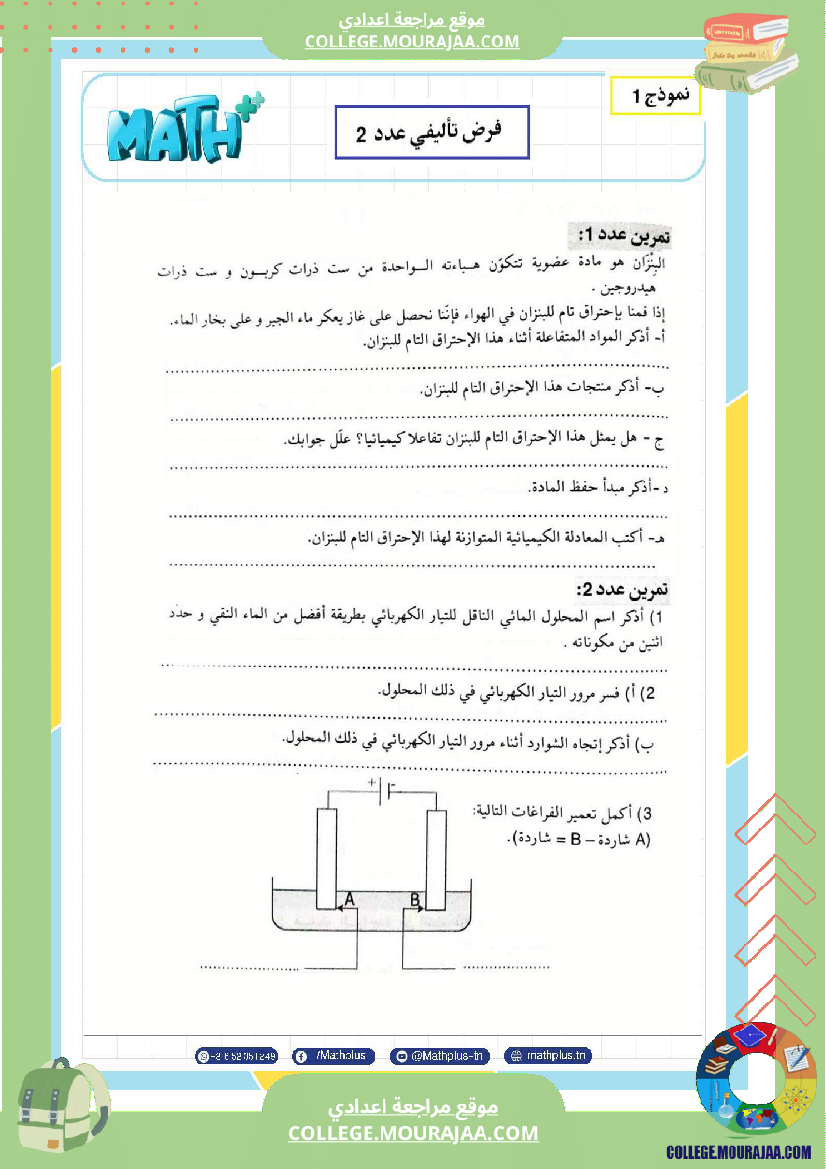 موقع مراجعة اعدادي
COLLEGE.MOURAJAA.COM
نموذج 1
MATH
فرض تأليفي عدد 2
تمرين عدد 1:
البِنْزَان هو مادة عضوية تتكوّن هباءته الواحدة من ست ذرات كربون و ست ذرات
هيدروجين .
إذا قمنا بإحتراق تام للبنزان في الهواء فإنّنا نحصل على غاز يعكر ماء الجير و على بخار الماء.
أ- أذكر المواد المتفاعلة أثناء هذا الإحتراق التام للبنزان.
ب- أذكر منتجات هذا الإحتراق التام للبنزان.
ج - هل يمثل هذا الإحتراق التام للبنزان تفاعلا كيميائيا؟ علّل جوابك.
د-أذكر مبدأ حفظ المادة.
هـ- أكتب المعادلة الكيميائية المتوازنة لهذا الإحتراق التام للبنزان.
تمرين عدد 2:
1) أذكر اسم المحلول المائي الناقل للتيار الكهربائي بطريقة أفضل من الماء النقي و حدّد
اثنين من مكوناته .
2) أ) فسر مرور التيار الكهربائي في ذلك المحلول.
ب) أذكر إتجاه الشوارد أثناء مرور التيار الكهربائي في ذلك المحلول.
3) أكمل تعمير الفراغات التالية:
(A شاردة – B = شاردة).
+ -
A B
/Mathplus
@Mathplus-tn
mathplus.tn
موقع مراجعة اعدادي
COLLEGE.MOURAJAA.COM
COLLEGE.MOURAJAA.COM